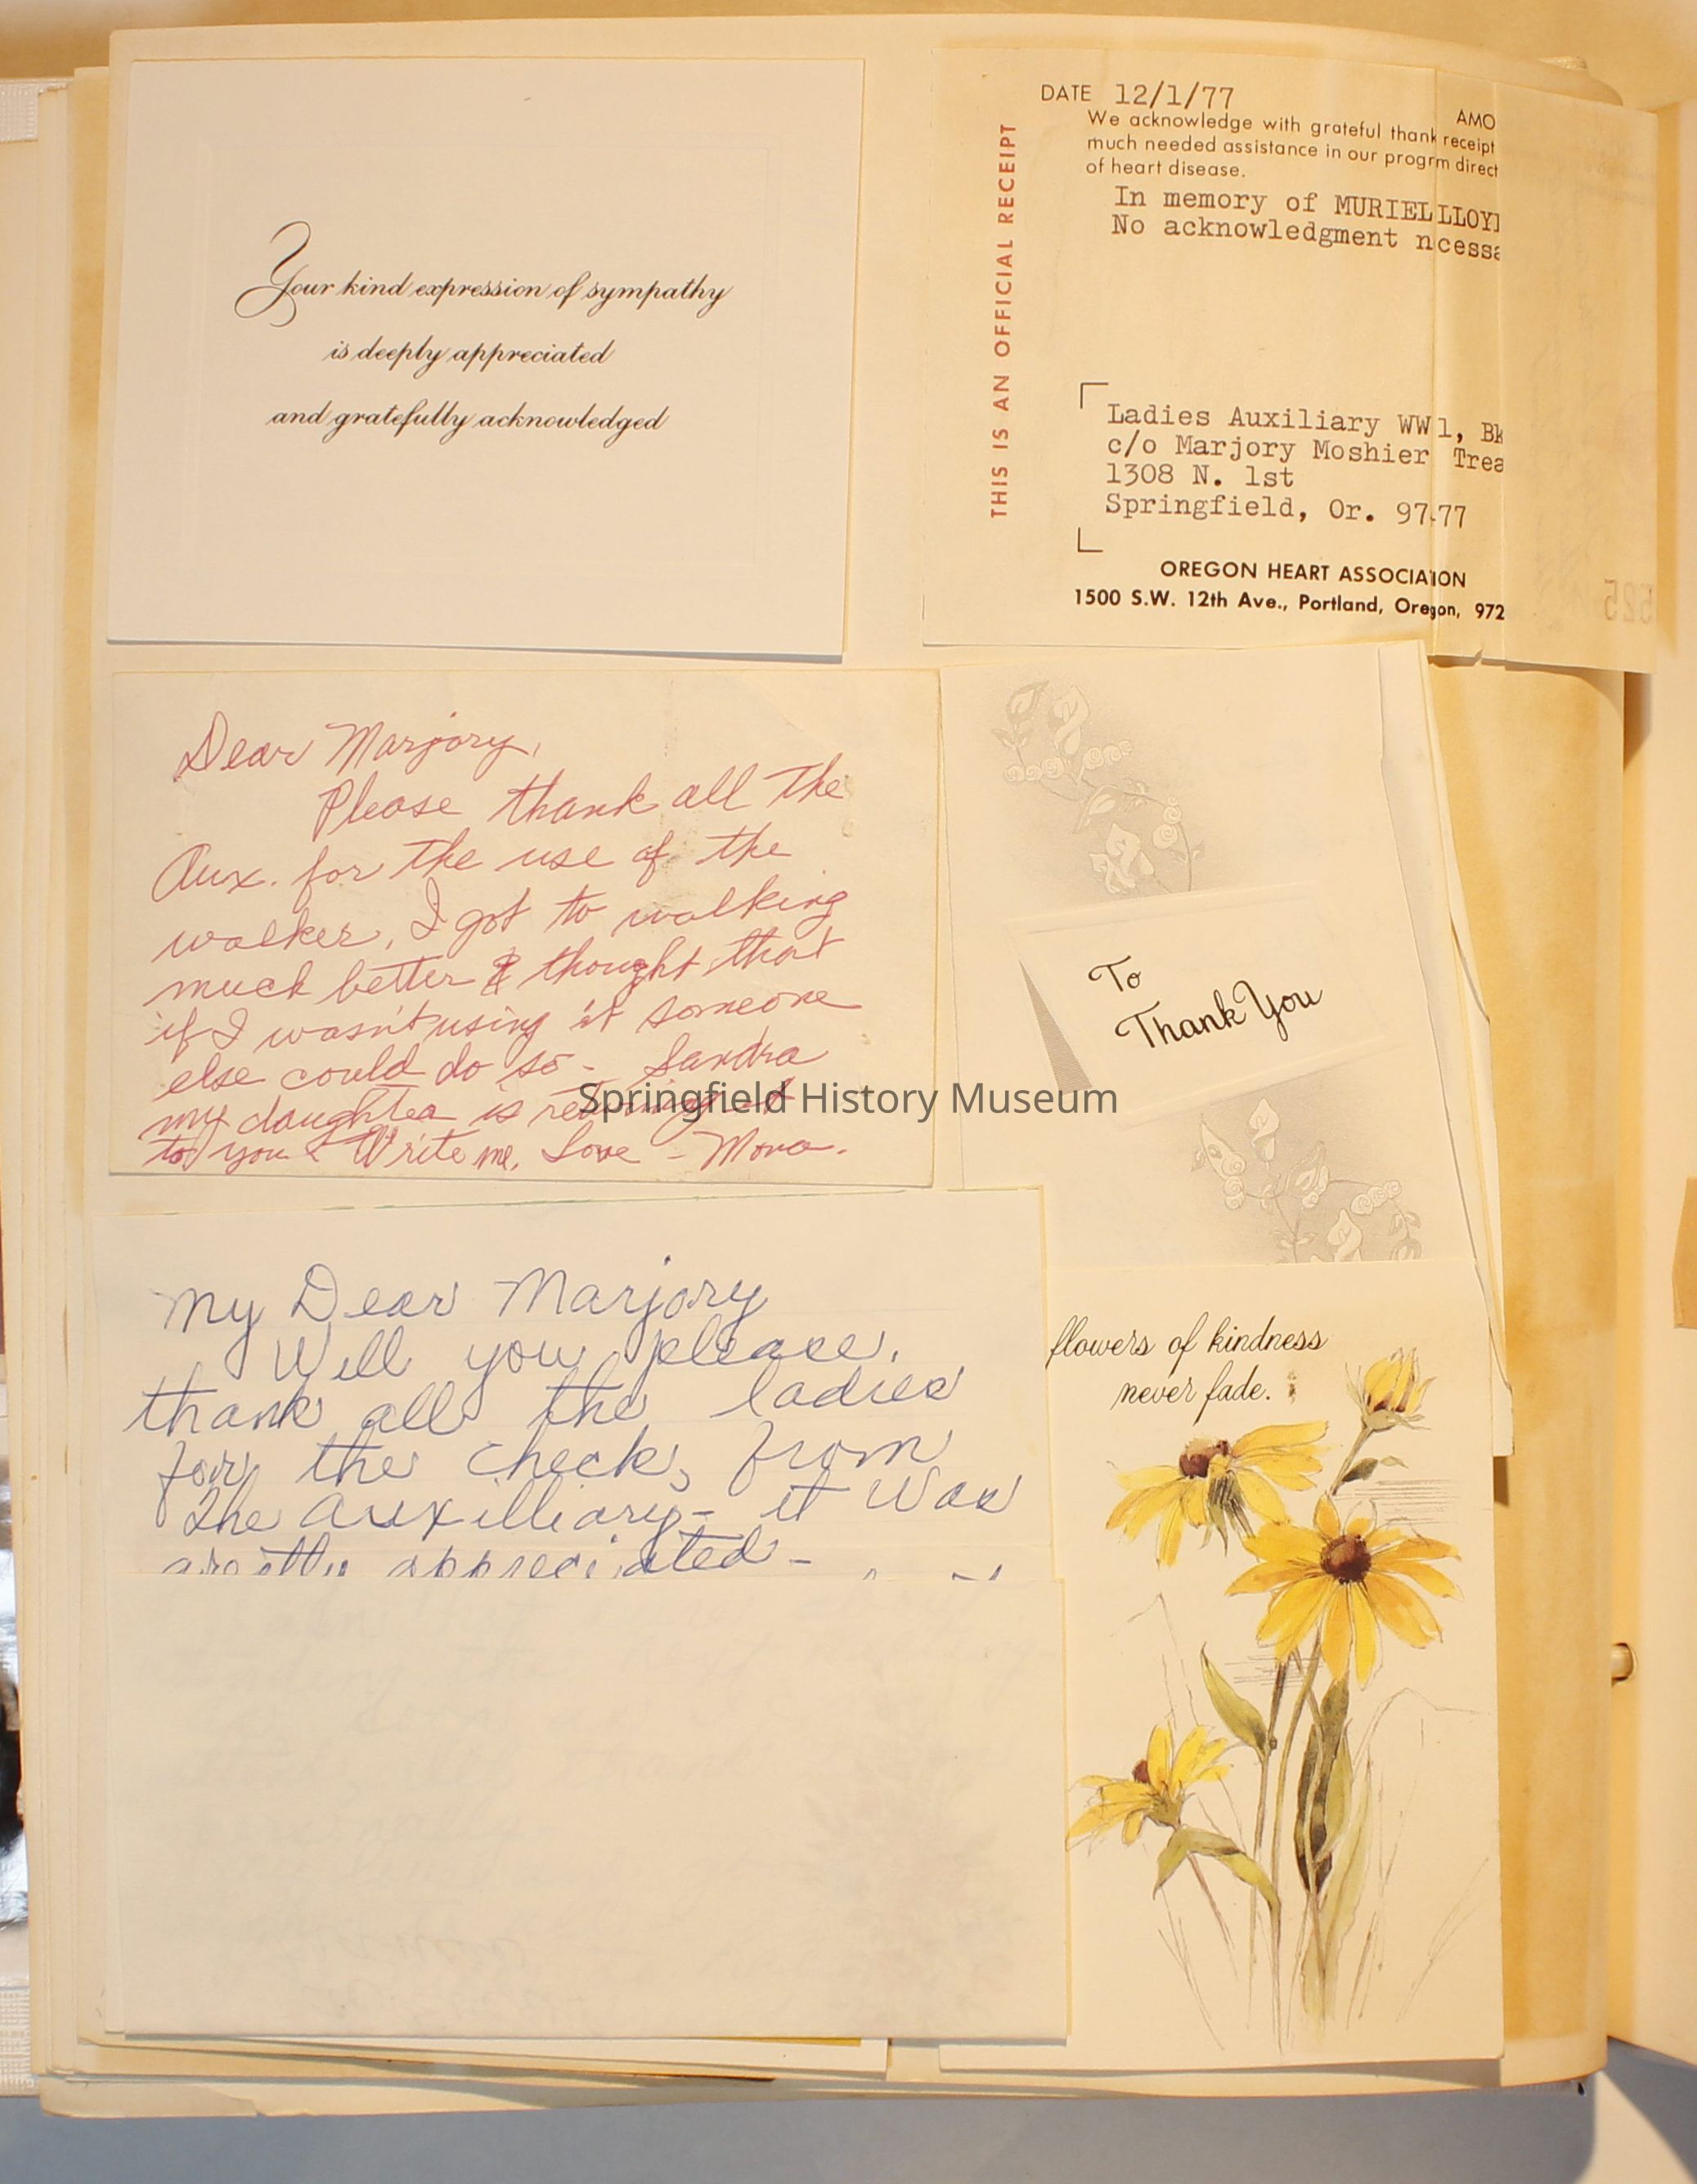 Your kind expression of sympathy
is deeply appreciated
and gratefully acknowledged
THIS IS AN OFFICIAL RECEIPT
DATE 12/1/77
AMO
We acknowledge with grateful thank receipt
much needed assistance in our progrm direct
of heart disease.
In memory of MURIEL LLOY
No acknowledgment ncess
Ladies Auxiliary WW1, Bk
c/o Marjory Moshier Trea
1308 N. 1st
Springfield, Or. 97477
OREGON HEART ASSOCIATION
1500 S.W. 12th Ave., Portland, Oregon, 972
525
Dear Marjory,
Please thank all the
Aux. for the use of the
walker, I got to walking
much better & thought that
if I wasn't using it someone
else could do so - Sandra
my daughter is returning it
to you & Write me. Love - Mona.
To
Thank You
Springfield History Museum
My Dear Marjory
Will you please,
thank all the ladies
for the check, from
The Auxilliary - it was
greatly appreciated -
flowers of kindness
never fade.